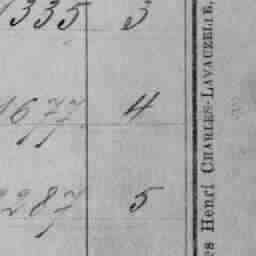 1335 3
1677 4
2287 5
es Henri CHARLES-LAVAUZELLE,